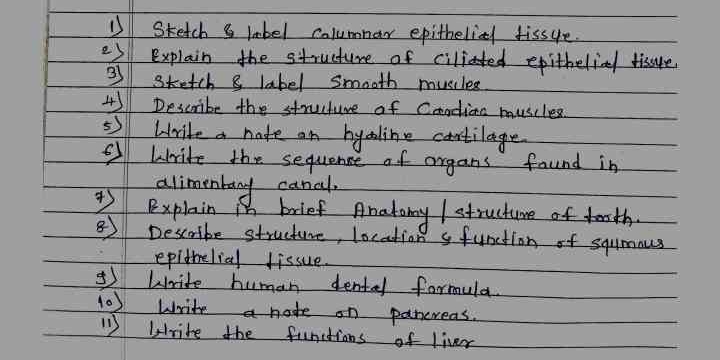 1) Sketch & label Calumnar epithelial tissue.
2) Explain the structure of ciliated epithelial tissue.
3) Sketch & label Smooth muscles
4) Describe the structure of Cardiac muscles
5) Write a note on hyaline cartilage.
6) Write the sequence of organs found in
alimentary canal.
7) Explain in brief Anatomy / structure of tooth.
8) Describe structure, location & function of squmous
epithelial tissue.
9) Write human dental formula.
10) Write a note on pancreas.
11) Write the functions of liver